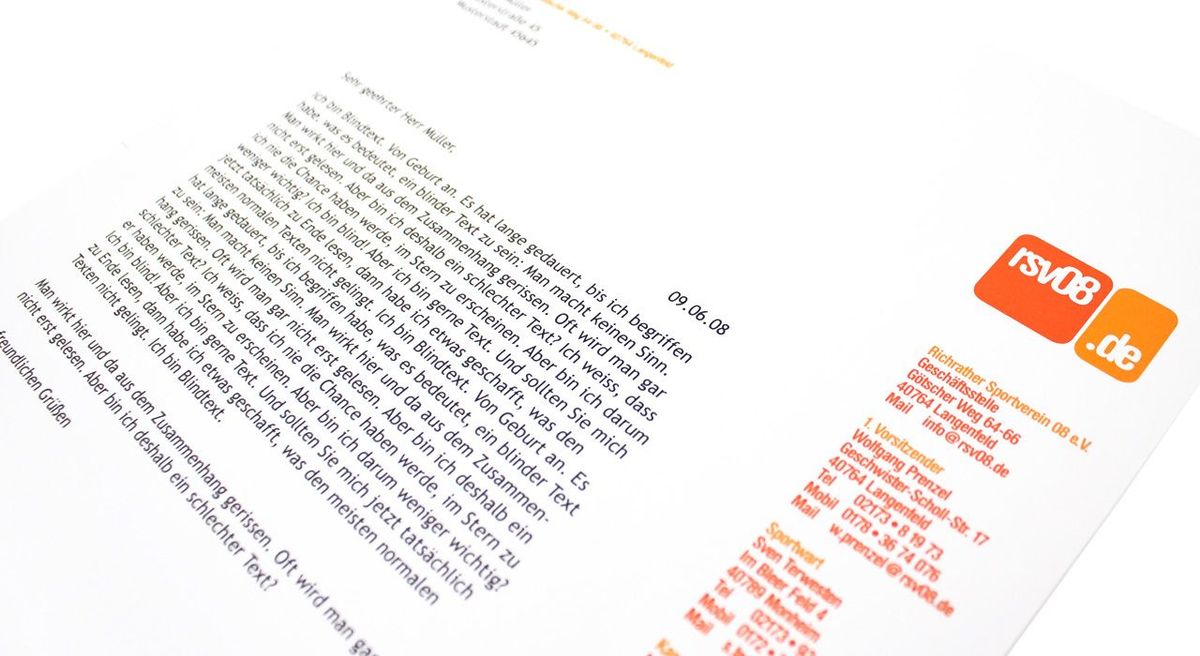 Musterstadt 45645
40764 Langenfeld
Sehr geehrter Herr Müller,
09.06.08
ich bin Blindtext. Von Geburt an. Es hat lange gedauert, bis ich begriffen
habe, was es bedeutet, ein blinder Text zu sein: Man macht keinen Sinn.
Man wirkt hier und da aus dem Zusammenhang gerissen. Oft wird man gar
nicht erst gelesen. Aber bin ich deshalb ein schlechter Text? Ich weiss, dass
ich nie die Chance haben werde, im Stern zu erscheinen. Aber bin ich darum
weniger wichtig? Ich bin blind! Aber ich bin gerne Text. Und sollten Sie mich
jetzt tatsächlich zu Ende lesen, dann habe ich etwas geschafft, was den
meisten normalen Texten nicht gelingt. Ich bin Blindtext. Von Geburt an. Es
hat lange gedauert, bis ich begriffen habe, was es bedeutet, ein blinder Text
zu sein: Man macht keinen Sinn. Man wirkt hier und da aus dem Zusammen-
hang gerissen. Oft wird man gar nicht erst gelesen. Aber bin ich deshalb ein
schlechter Text? Ich weiss, dass ich nie die Chance haben werde, im Stern zu
er haben werde, im Stern zu erscheinen. Aber bin ich darum weniger wichtig?
Ich bin blind! Aber ich bin gerne Text. Und sollten Sie mich jetzt tatsächlich
zu Ende lesen, dann habe ich etwas geschafft, was den meisten normalen
Texten nicht gelingt. Ich bin Blindtext.
Man wirkt hier und da aus dem Zusammenhang gerissen. Oft wird man ga
nicht erst gelesen. Aber bin ich deshalb ein schlechter Text?
freundlichen Grüßen
rsv08
.de
Richrather Sportverein 08 e.V.
Geschäftsstelle
Götscher Weg 64-66
40764 Langenfeld
Mail info@rsv08.de
1. Vorsitzender
Wolfgang Prenzel
Geschwister-Scholl-Str. 17
40764 Langenfeld
Tel 02173 • 8 19 73
Mobil 0178 • 36 74 076
Mail w.prenzel@rsv08.de
Sportwart
Sven Terwesten
Im Bleer Feld 4
40789 Monheim
Tel 02173 •
Mobil 0172 •
Mail